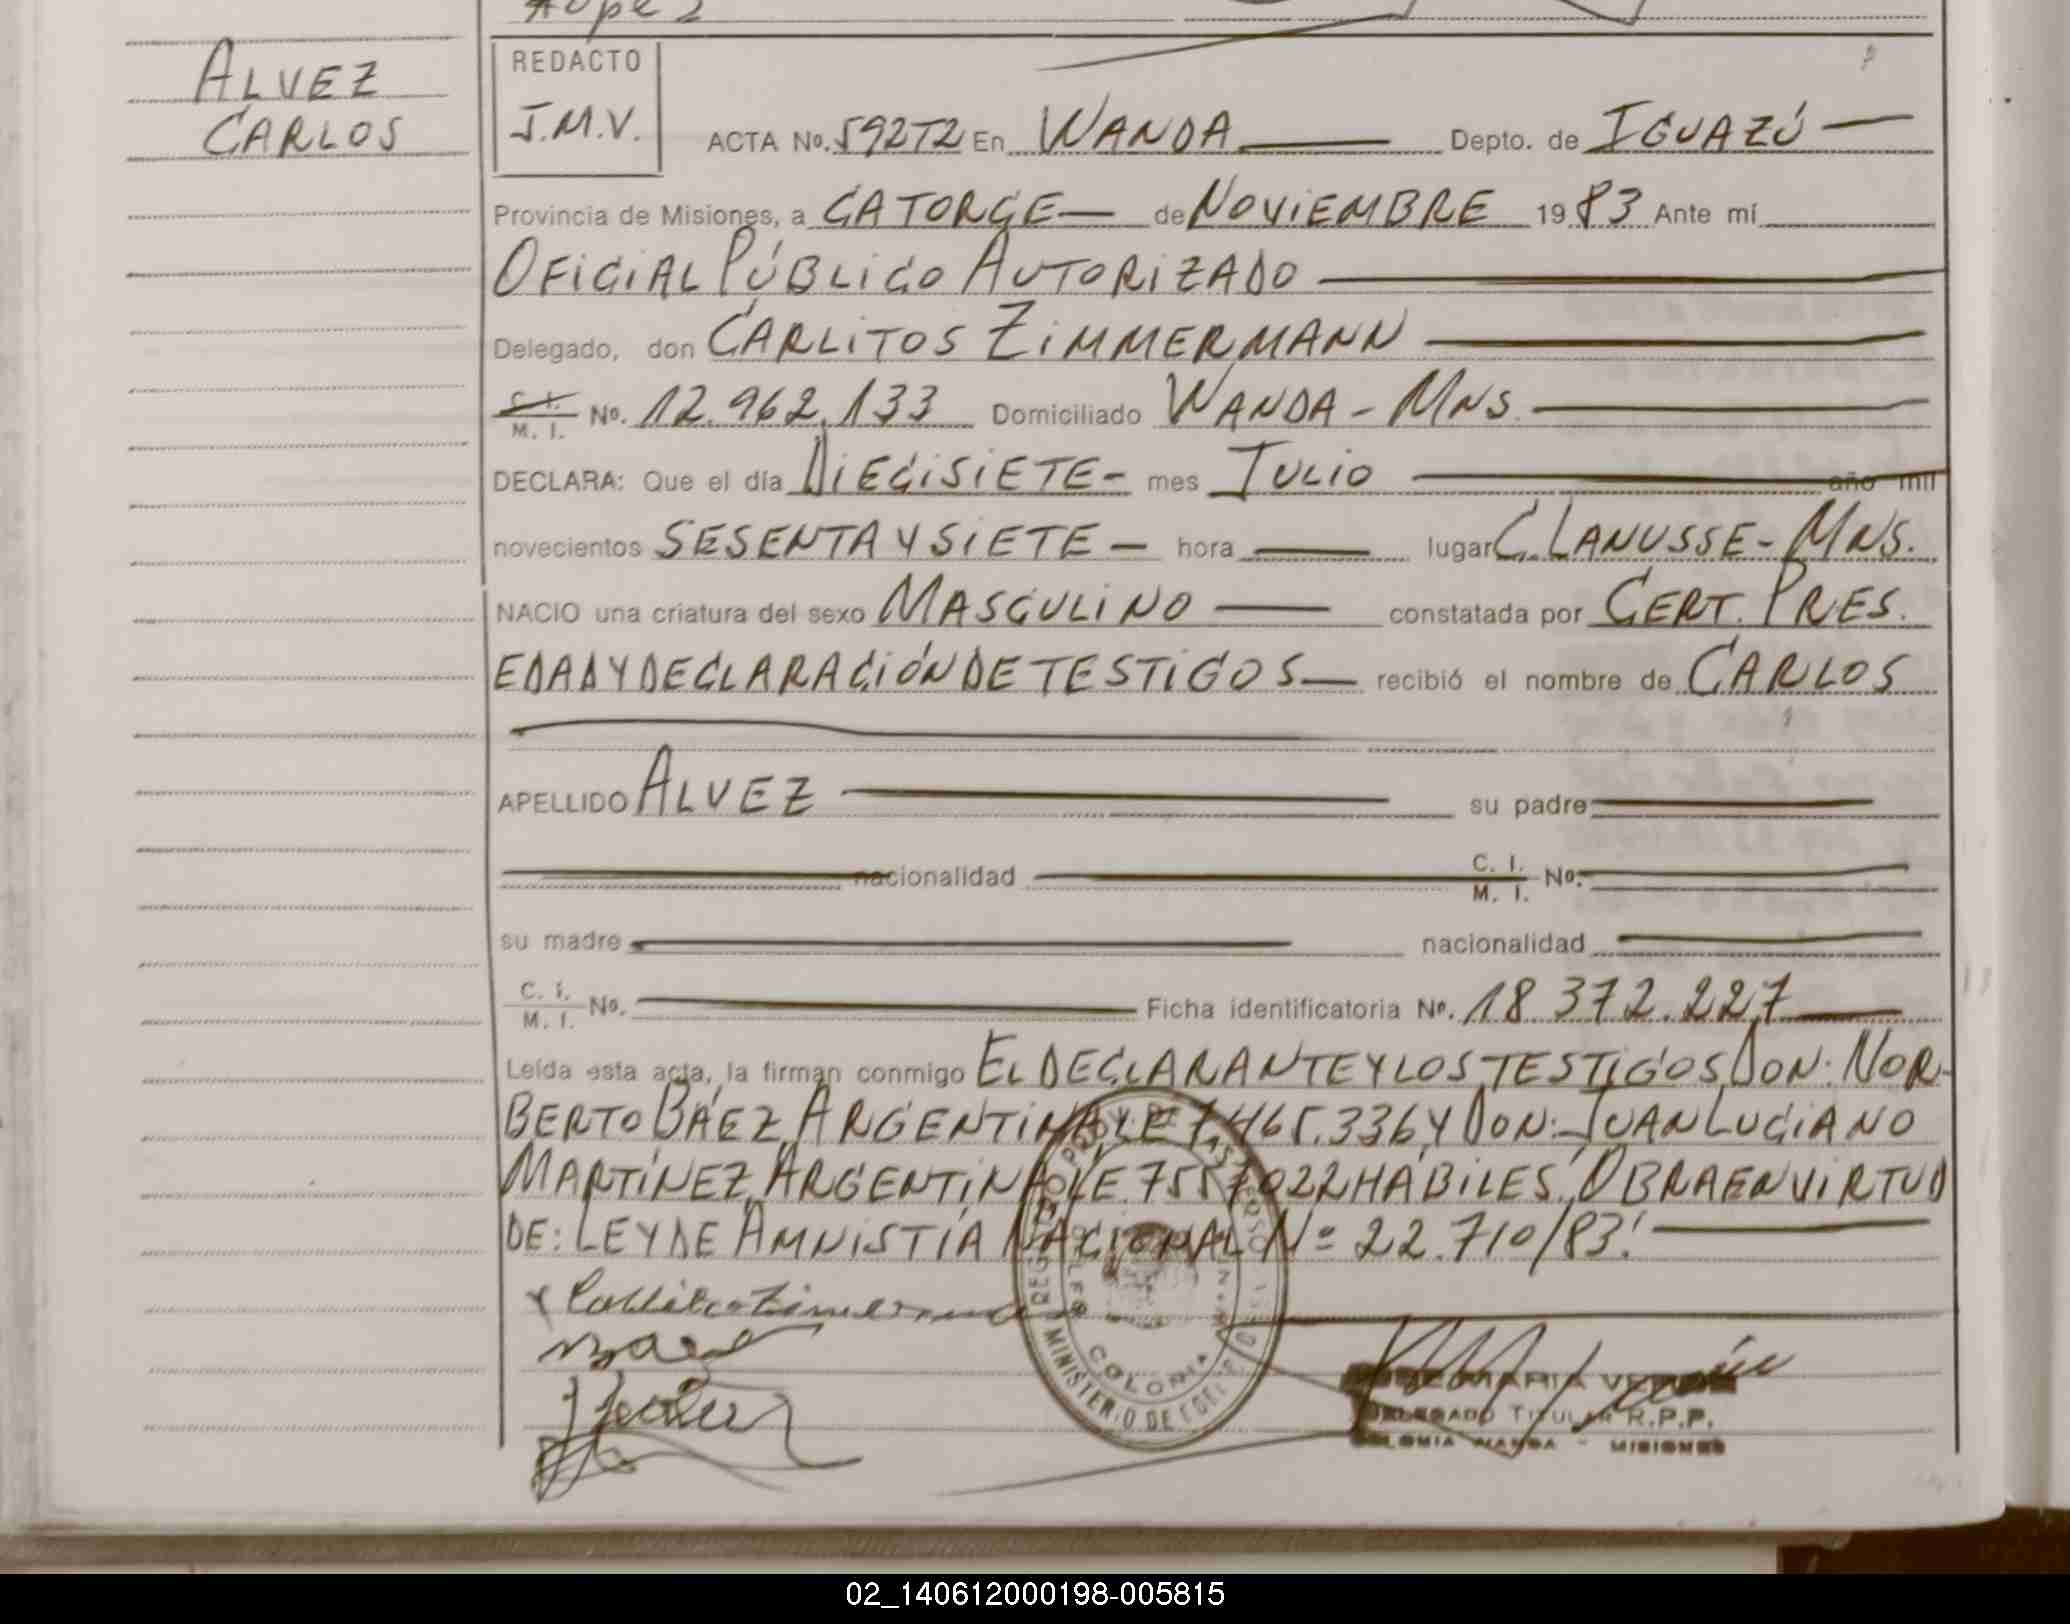 ALVEZ
CARLOS
REDACTO
J.M.V.
ACTA No. 592T2 En WANDA Depto. de IGUAZÚ
Provincia de Misiones, a CATORCE de NOVIEMBRE 1983 Ante mí
OFICIAL PÚBLICO AUTORIZADO
Delegado, don CARLITOS ZIMMERMANN
C. I.
M. I. No. 12.962.133 Domiciliado WANDA - MNS.
DECLARA: Que el día DIECISIETE - mes JULIO año mil
novecientos SESENTA Y SIETE - hora lugar C. LANUSSE - MNS.
NACIO una criatura del sexo MASCULINO constatada por CERT. PRES.
EDAD Y DECLARACIÓN DE TESTIGOS recibió el nombre de CARLOS
APELLIDO ALVEZ su padre
nacionalidad C. I. M. I. No.
su madre nacionalidad
C. I. M. I. No. Ficha identificatoria No. 18.372.227
Leída esta acta, la firman conmigo EL DECLARANTE Y LOS TESTIGOS, DON: NOR-
BERTO BÁEZ, ARGENTINA, L.E. 7.465.336 Y DON: JUAN LUCIANO
MARTÍNEZ, ARGENTINA, L.E. 7557022 HÁBILES. OBRA EN VIRTUD
DE: LEY DE AMNISTÍA NACIONAL Nº 22.710/83.
COLONIA
MINISTERIO DE
JOSE MARIA
DELEGADO TITULAR R.P.P.
COLONIA WANDA - MISIONES
02_140612000198-005815